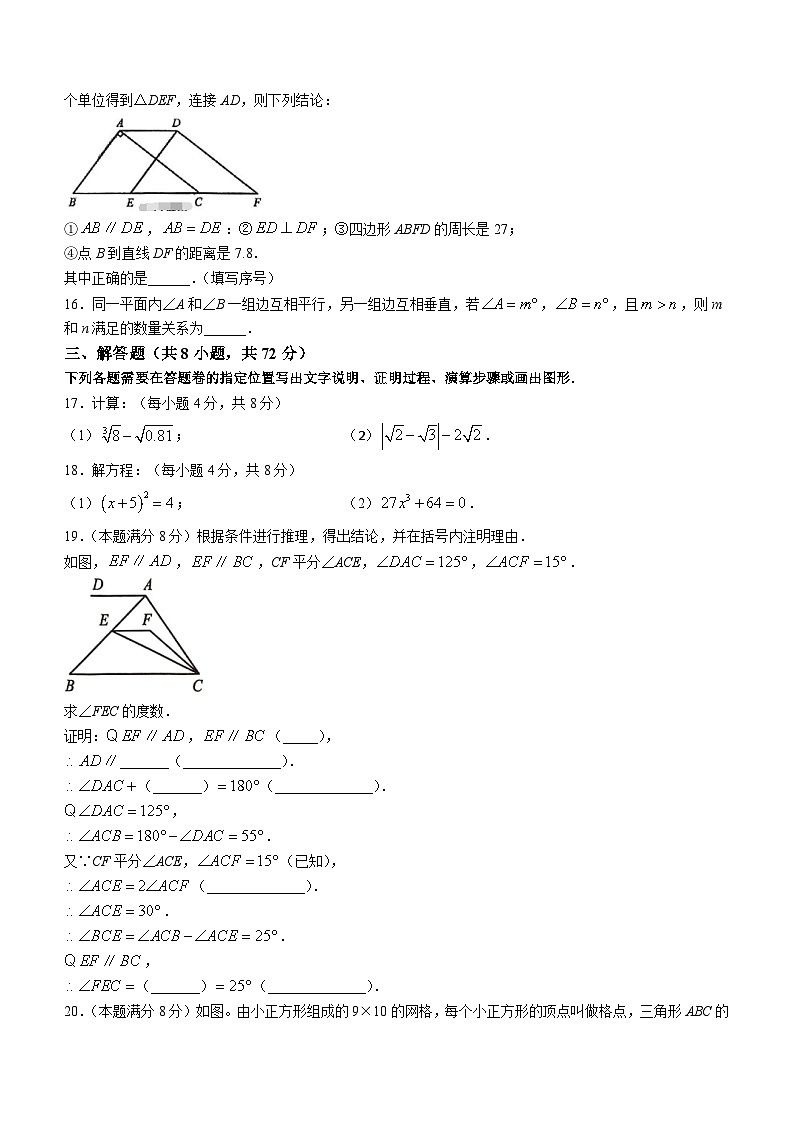 个单位得到△DEF，连接AD，则下列结论：
A D
B E C F
①AB∥DE，AB=DE：②ED⊥DF；③四边形ABFD的周长是27；
④点B到直线DF的距离是7.8．
其中正确的是______．（填写序号）
16．同一平面内∠A和∠B一组边互相平行，另一组边互相垂直，若∠A=m°，∠B=n°，且m>n，则m
和n满足的数量关系为______．
三、解答题（共8小题，共72分）
下列各题需要在答题卷的指定位置写出文字说明、证明过程、演算步骤或画出图形．
17．计算：（每小题4分，共8分）
（1）∛8−√0.81； （2）|√2−√3|−2√2．
18．解方程：（每小题4分，共8分）
（1）(x+5)²=4； （2）27x³+64=0．
19．（本题满分8分）根据条件进行推理，得出结论，并在括号内注明理由．
如图，EF∥AD，EF∥BC，CF平分∠ACE，∠DAC=125°，∠ACF=15°．
D A
E F
B C
求∠FEC的度数．
证明：Q EF∥AD，EF∥BC（_____），
∴AD∥_______（______________）．
∴∠DAC+（_______）=180°（______________）．
Q∠DAC=125°，
∴∠ACB=180°−∠DAC=55°．
又∵CF平分∠ACE，∠ACF=15°（已知），
∴∠ACE=2∠ACF（______________）．
∴∠ACE=30°．
∴∠BCE=∠ACB−∠ACE=25°．
Q EF∥BC，
∴∠FEC=（_______）=25°（______________）．
20．（本题满分8分）如图。由小正方形组成的9×10的网格，每个小正方形的顶点叫做格点，三角形ABC的